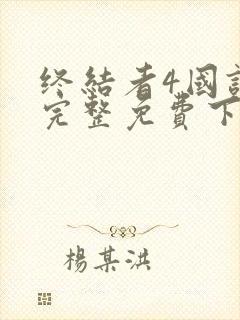 终结者4国
完整免費下
楊某洪